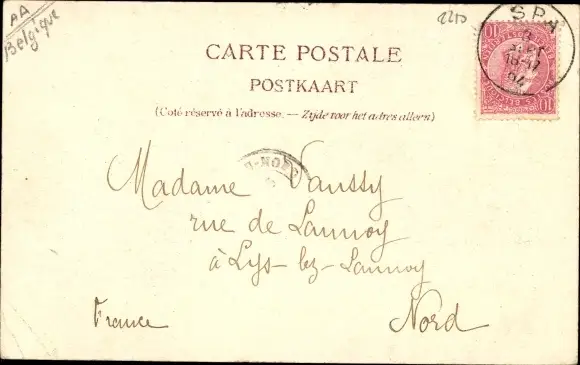 AA
Belgique
2210
SPA
8
SEPT
16-17
04
CARTE POSTALE
POSTKAART
(Coté réservé à l'adresse. — Zijde voor het adres alleen)
NORD
Madame Vaussy
rue de Lannoy
à Lys-lez-Lannoy
France Nord